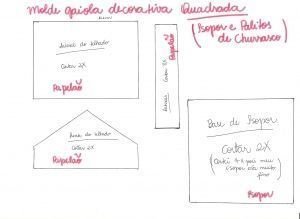 Molde gaiola decorativa Quadrada
(Isopor e Palitos
de Churrasco)
do telhado
Cortar 2X
Papelão
Cortar 2X
Papelão
do telhado
Cortar 2X
Papelão
Base de Isopor
Cortar 2X
meu
isopor era muito
fino)
Isopor